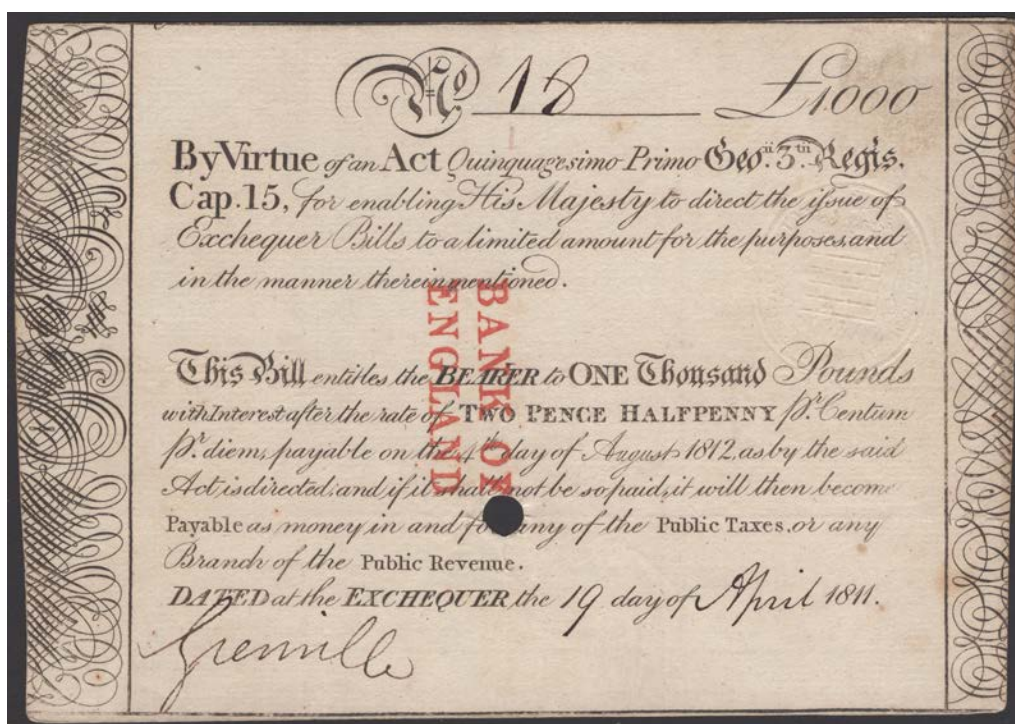 No 18 £1000
By Virtue of an Act Quinquagesimo Primo Geo.ii 3.tii Regis.
Cap.15, for enabling His Majesty to direct the issue of
Exchequer Bills to a limited amount for the purposes, and
in the manner therein mentioned.
BANK OF
ENGLAND
This Bill entitles the BEARER to ONE Thousand Pounds
with Interest after the rate of TWO PENCE HALFPENNY pr. Centum
pr. diem, payable on the 4th day of August 1812, as by the said
Act is directed; and if it shall not be so paid, it will then become
Payable as money in and for any of the Public Taxes, or any
Branch of the Public Revenue.
DATED at the EXCHEQUER the 19 day of April 1811.
Grenville